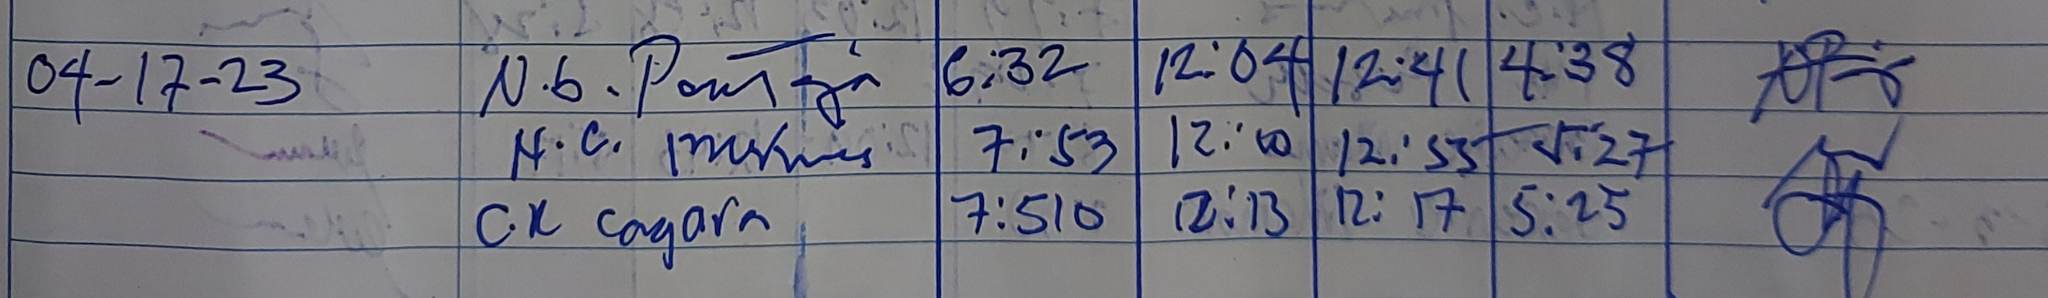 04-17-23 N.b. 6:32 12:04 12:41 4:38
H.C. 7:53 12:10 12:53 5:27
C.K cagara 7:510 12:13 12:17 5:25